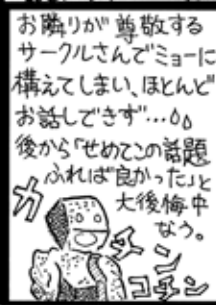 お隣りが尊敬する
サークルさんでミョーに
構えてしまい、ほとんど
お話しできず…
後から「せめてこの話題
ふれば良かった」と
大後悔中
なう。
カ
チン
コチン